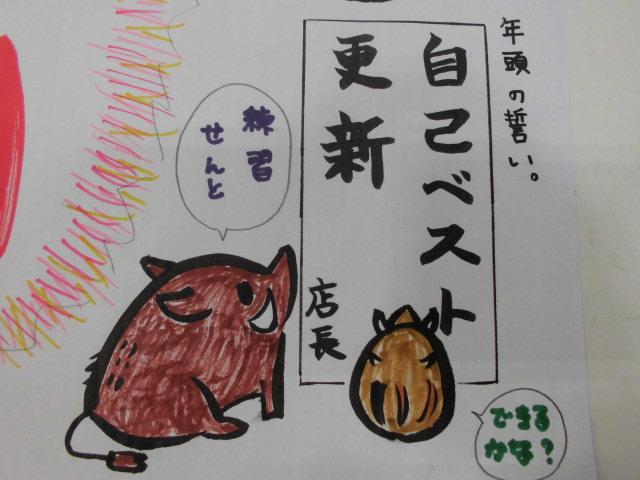 年頭の誓い。
自己ベスト
更新
店長
練習
せんと
できる
かな?